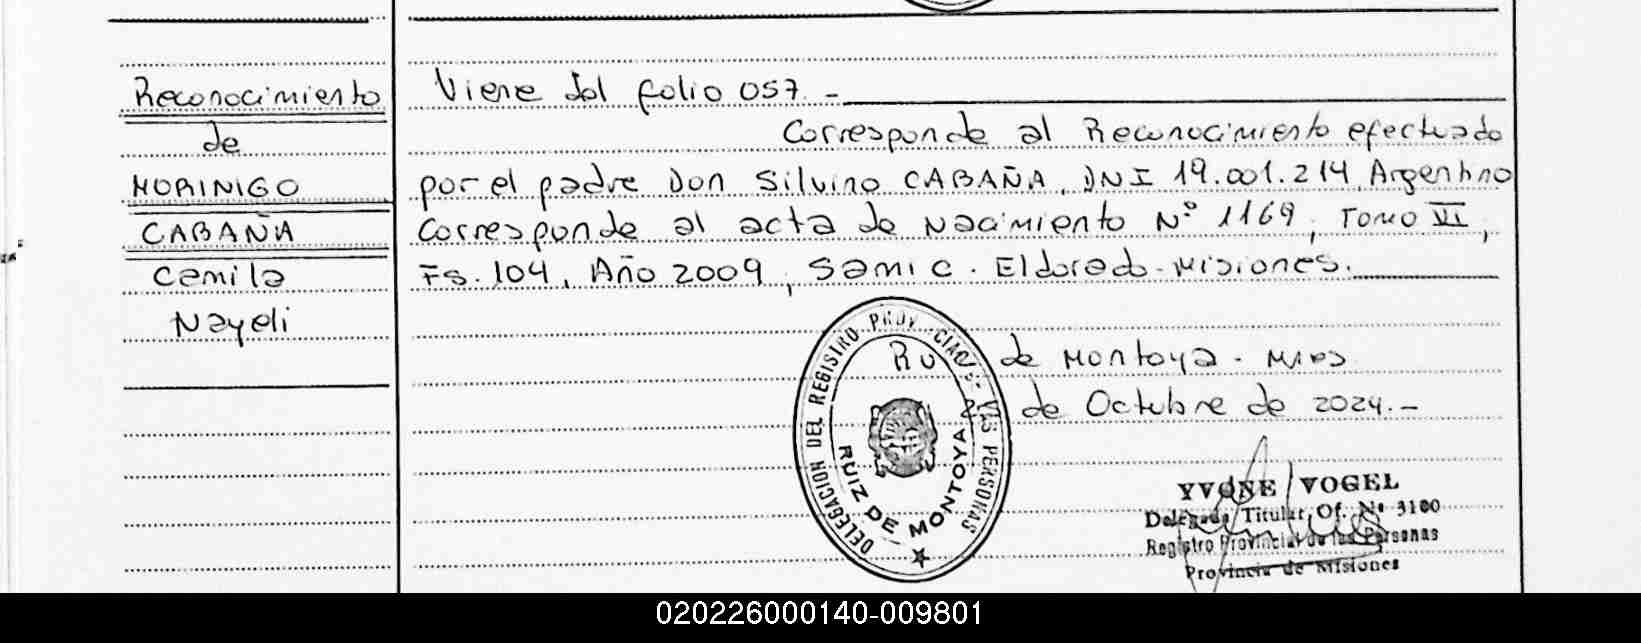 Reconocimiento
de
MORINIGO
CABAÑA
Camila
Nayeli
Viene del folio 057.-
Corresponde al Reconocimiento efectuado
por el padre Don Silvino CABAÑA, DNI 19.001.214, Argentino
Corresponde al acta de Nacimiento Nº 1169, Tomo VI,
Fs. 104, Año 2009, Samic. Eldorado-Misiones.
Ru de Montoya - Mnes
de Octubre de 2024.-
DELEGACION DEL REGISTRO PROV PERSONAS
RUIZ DE MONTOYA
YVONE VOGEL
Delegada Titular Of. Nº 3100
Registro Provincial de las Personas
Provincia de Misiones
020226000140-009801